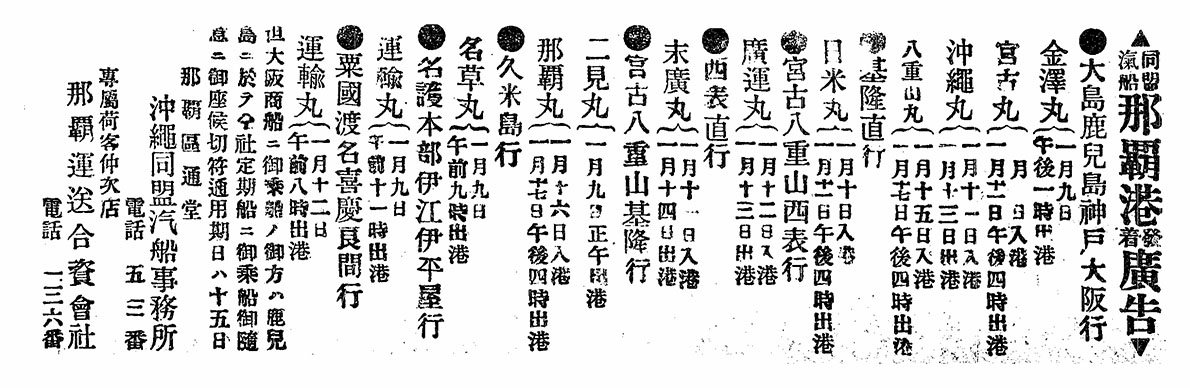 ▲同盟汽船那覇港發着廣告▼
●大島鹿兒島神戸大阪行
金澤丸 一月九日
午後一時出港
宮古丸 月 日入港
一月十二日午後四時出港
沖繩丸 一月十一日入港
一月十三日出港
八重山丸 一月十五日入港
一月十七日午後四時出港
●基隆直行
日米丸 一月十日入港
一月十二日午後四時出港
●宮古八重山西表行
廣運丸 一月十二日入港
一月十三日出港
●西表直行
末廣丸 一月十一日入港
一月十四日出港
●宮古八重山基隆行
二見丸 一月九日正午出港
那覇丸 一月十六日入港
一月十七日午後四時出港
●久米島行
名草丸 一月九日
午前九時出港
●名護本部伊江伊平屋行
運輸丸 一月九日
午前十一時出港
●粟國渡名喜慶良間行
運輸丸 一月十二日
午前八時出港
但大阪商船ニ御乘船ノ御方ハ鹿兒
島ニ於テ仝社定期船ニ御乘船御隨
意ニ御座候切符通用期日ハ十五日
那覇區通堂
沖繩同盟汽船事務所
電話 五三番
專屬荷客仲次店
那覇運送合資會社
電話 一三六番